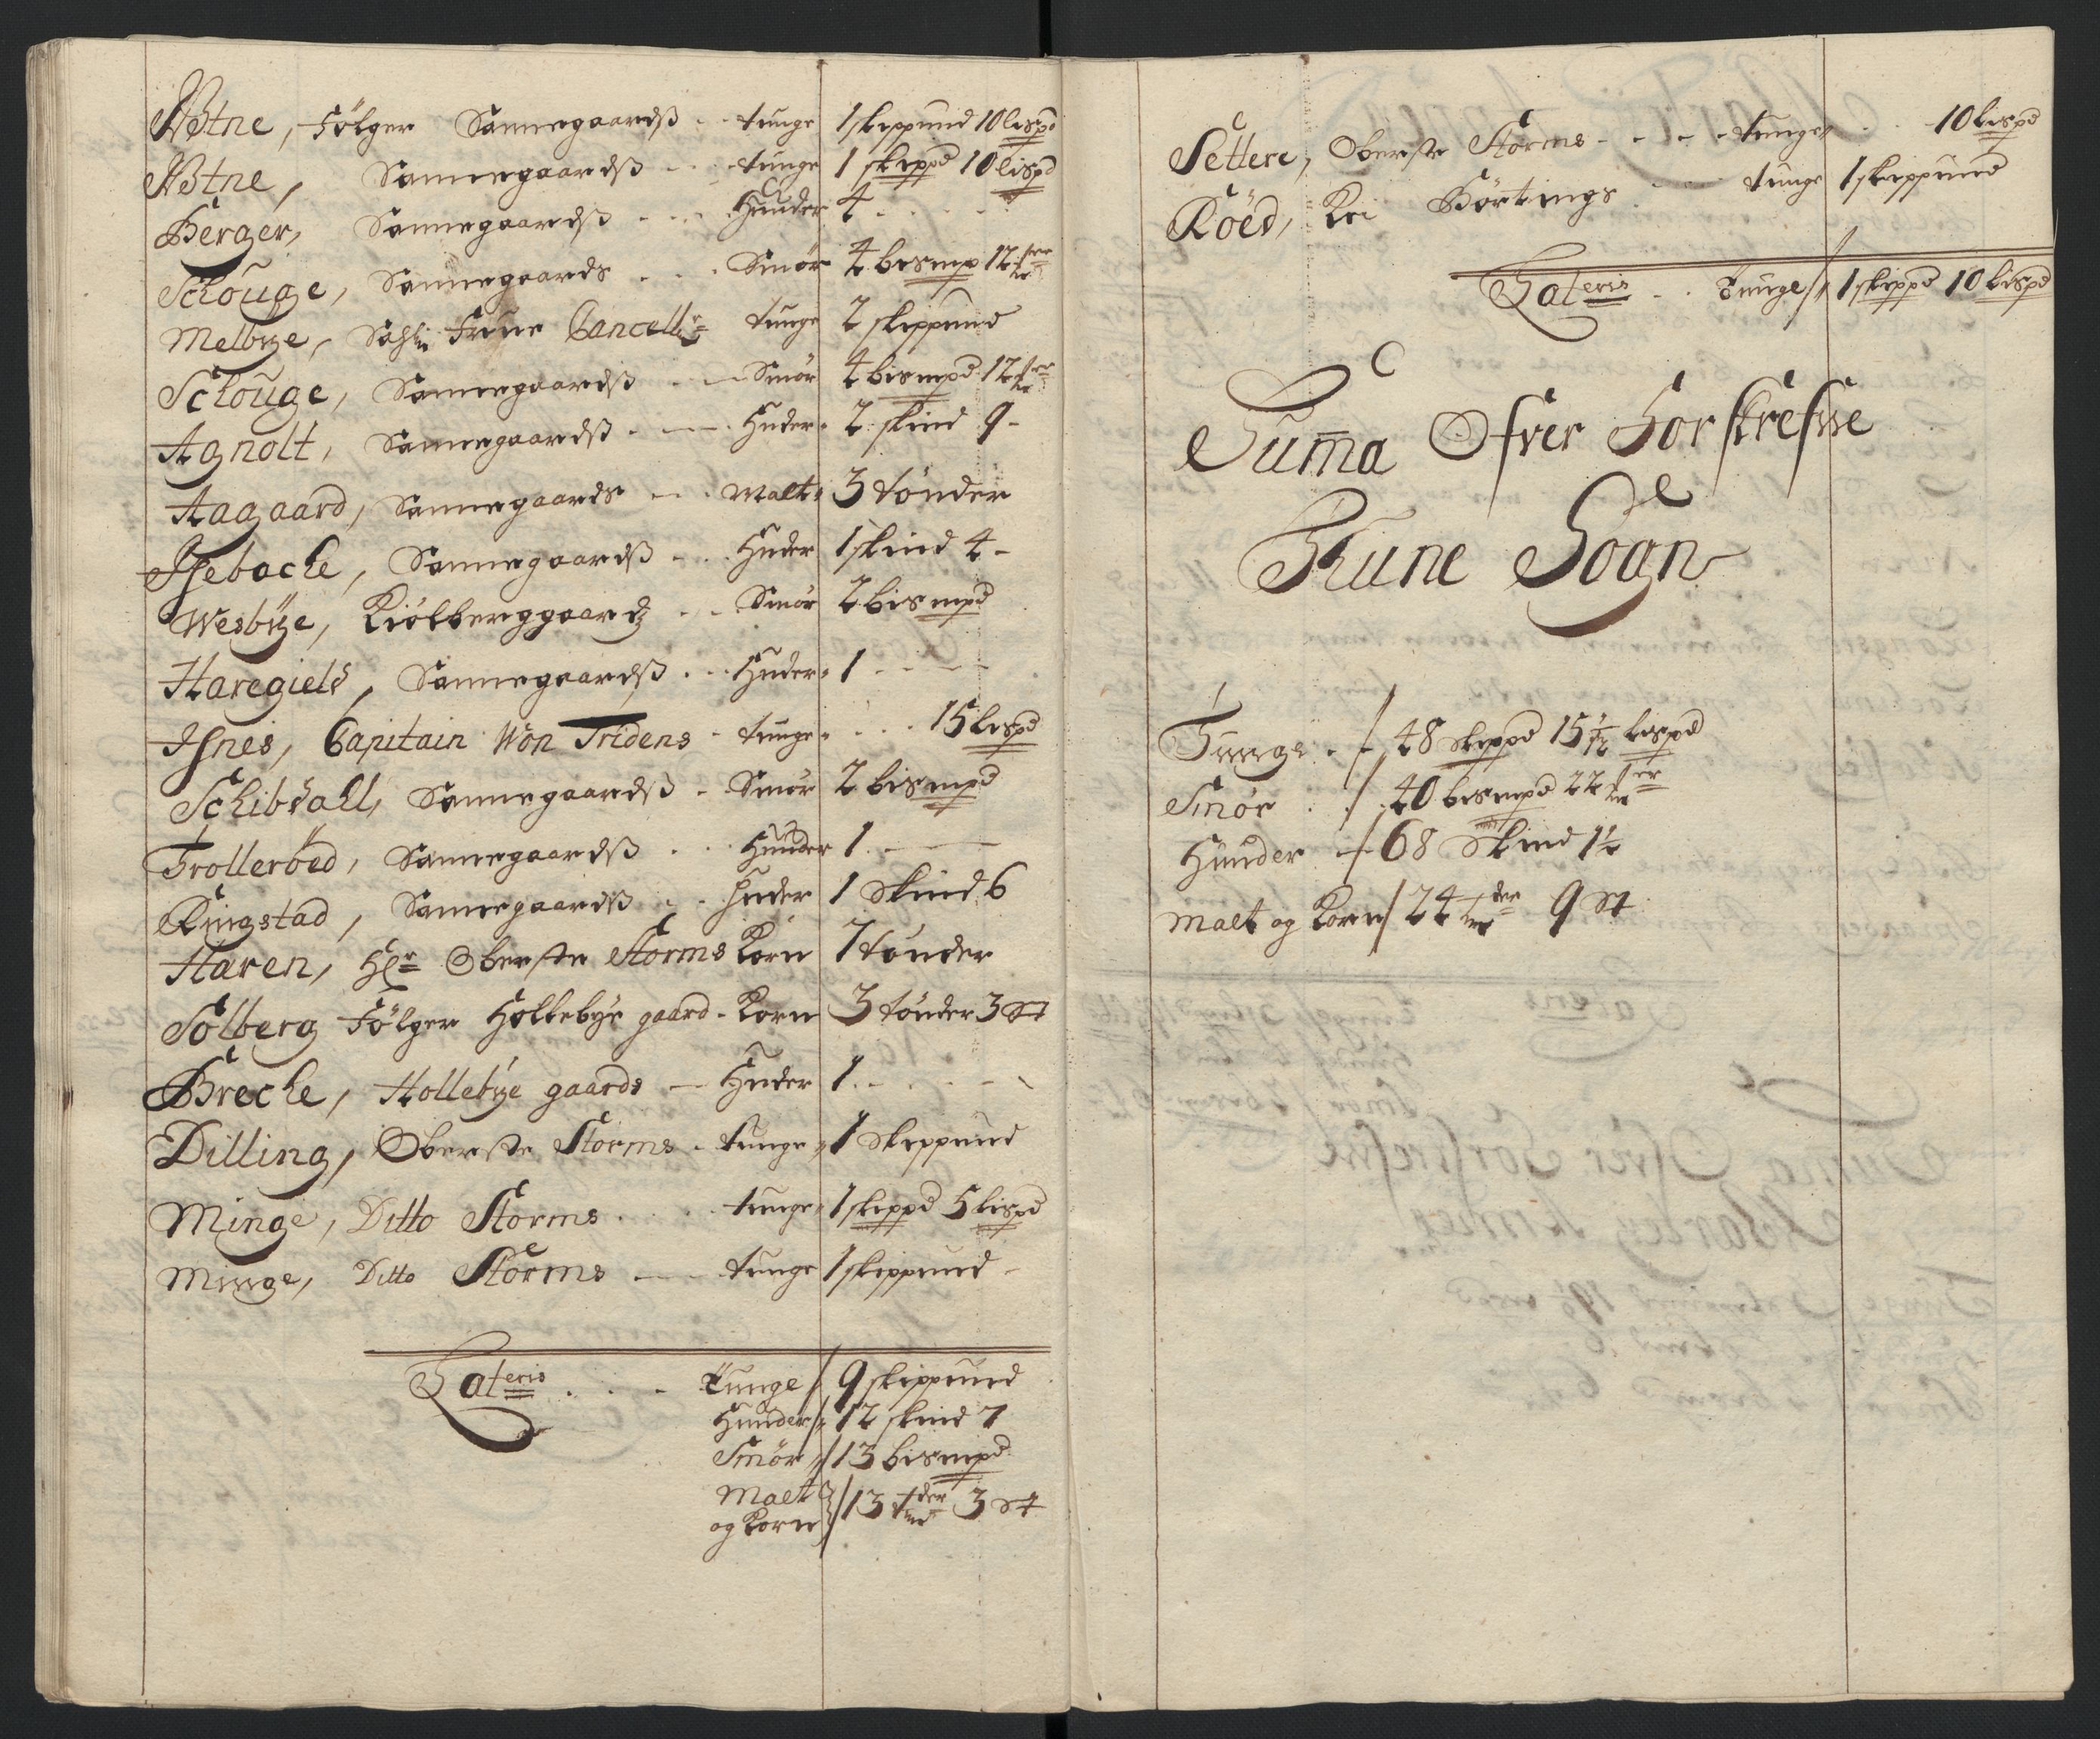 Wstne, Fölger Sannegaardß tunge 1 skeppund 10 lispd
Wstne, Sannegaardß tunge 1 skeppd 10 lispd
Berger, Sannegaardß Huuder 4
Schouge, Sannegaards Smør 4 bismp 12
Melbye, Frue Cancell tunge 2 skeppund
Schouge, Sannegaardß Smør 4 bismpd 12
Agnolt, Sannegaardß Huder 2 skind 9
Aagaard, Sannegaards Malt 3 tönder
Isebache, Sannegaardß Huder 1 skind 4
Wesbye, Kiölberggaardz Smør 2 bismpd
Haregield, Sannegaardß Huder 1
Isnes, Capitain Won Tridens tunge 15 lispd
Schibdall, Sannegaardß Smør 2 bismpd
Trolleröed, Sannegaardß Huuder 1
Ringstad, Sannegaardß Huder 1 Skind 6
Haren, Hr Oberste Storms Korn 7 tönder
Solberg Fölger Hollebye gaard Korn 3 tönder 3 St
Breche, Hollebye gaards Huder 1
Dilling, Oberste Storms tunge 1 Skeppund
Minge, Ditto Storms tunge 1 skeppd 5 lispd
Minge, Ditto Storms tunge 1 skeppund
Lateris Tunge / 9 skippund
Huuder / 12 skind 7
Smör / 13 bismpd
Malt og Korn / 13 tnder 3 St
Settere, Oberste Storms tunge 10 lispd
Röed, Lei Börtings tunge 1 skeppund
Lateris Tunge / 1 skeppd 10 lispd
Suma Ofver Forskrefne
Thune Sogn
Tunge / 48 skeppd 15 1/2 lispd
Smör / 40 bismpd 22
Huuder / 68 Skind 1 1/2
Malt og Korn / 24 tnder 9 St